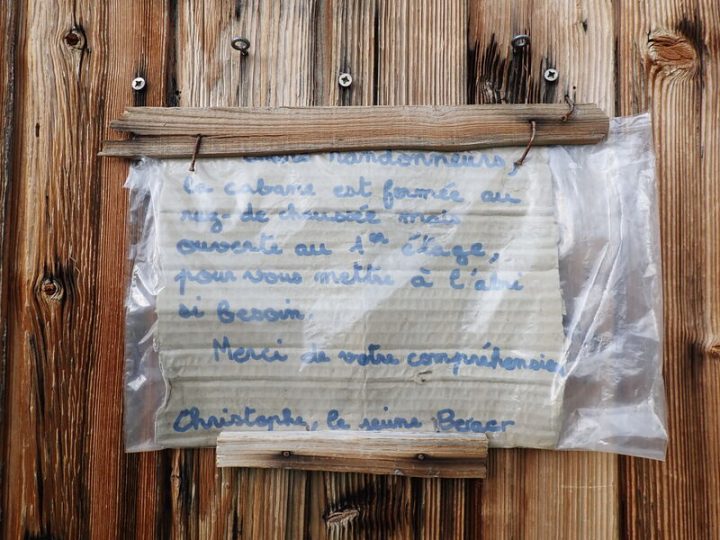 randonneurs,
la cabane est fermée au
rez-de chaussée mais
ouverte au 1er étage,
pour vous mettre à l'abri
si besoin.
Merci de votre compréhension,
Christophe, le jeune Berger